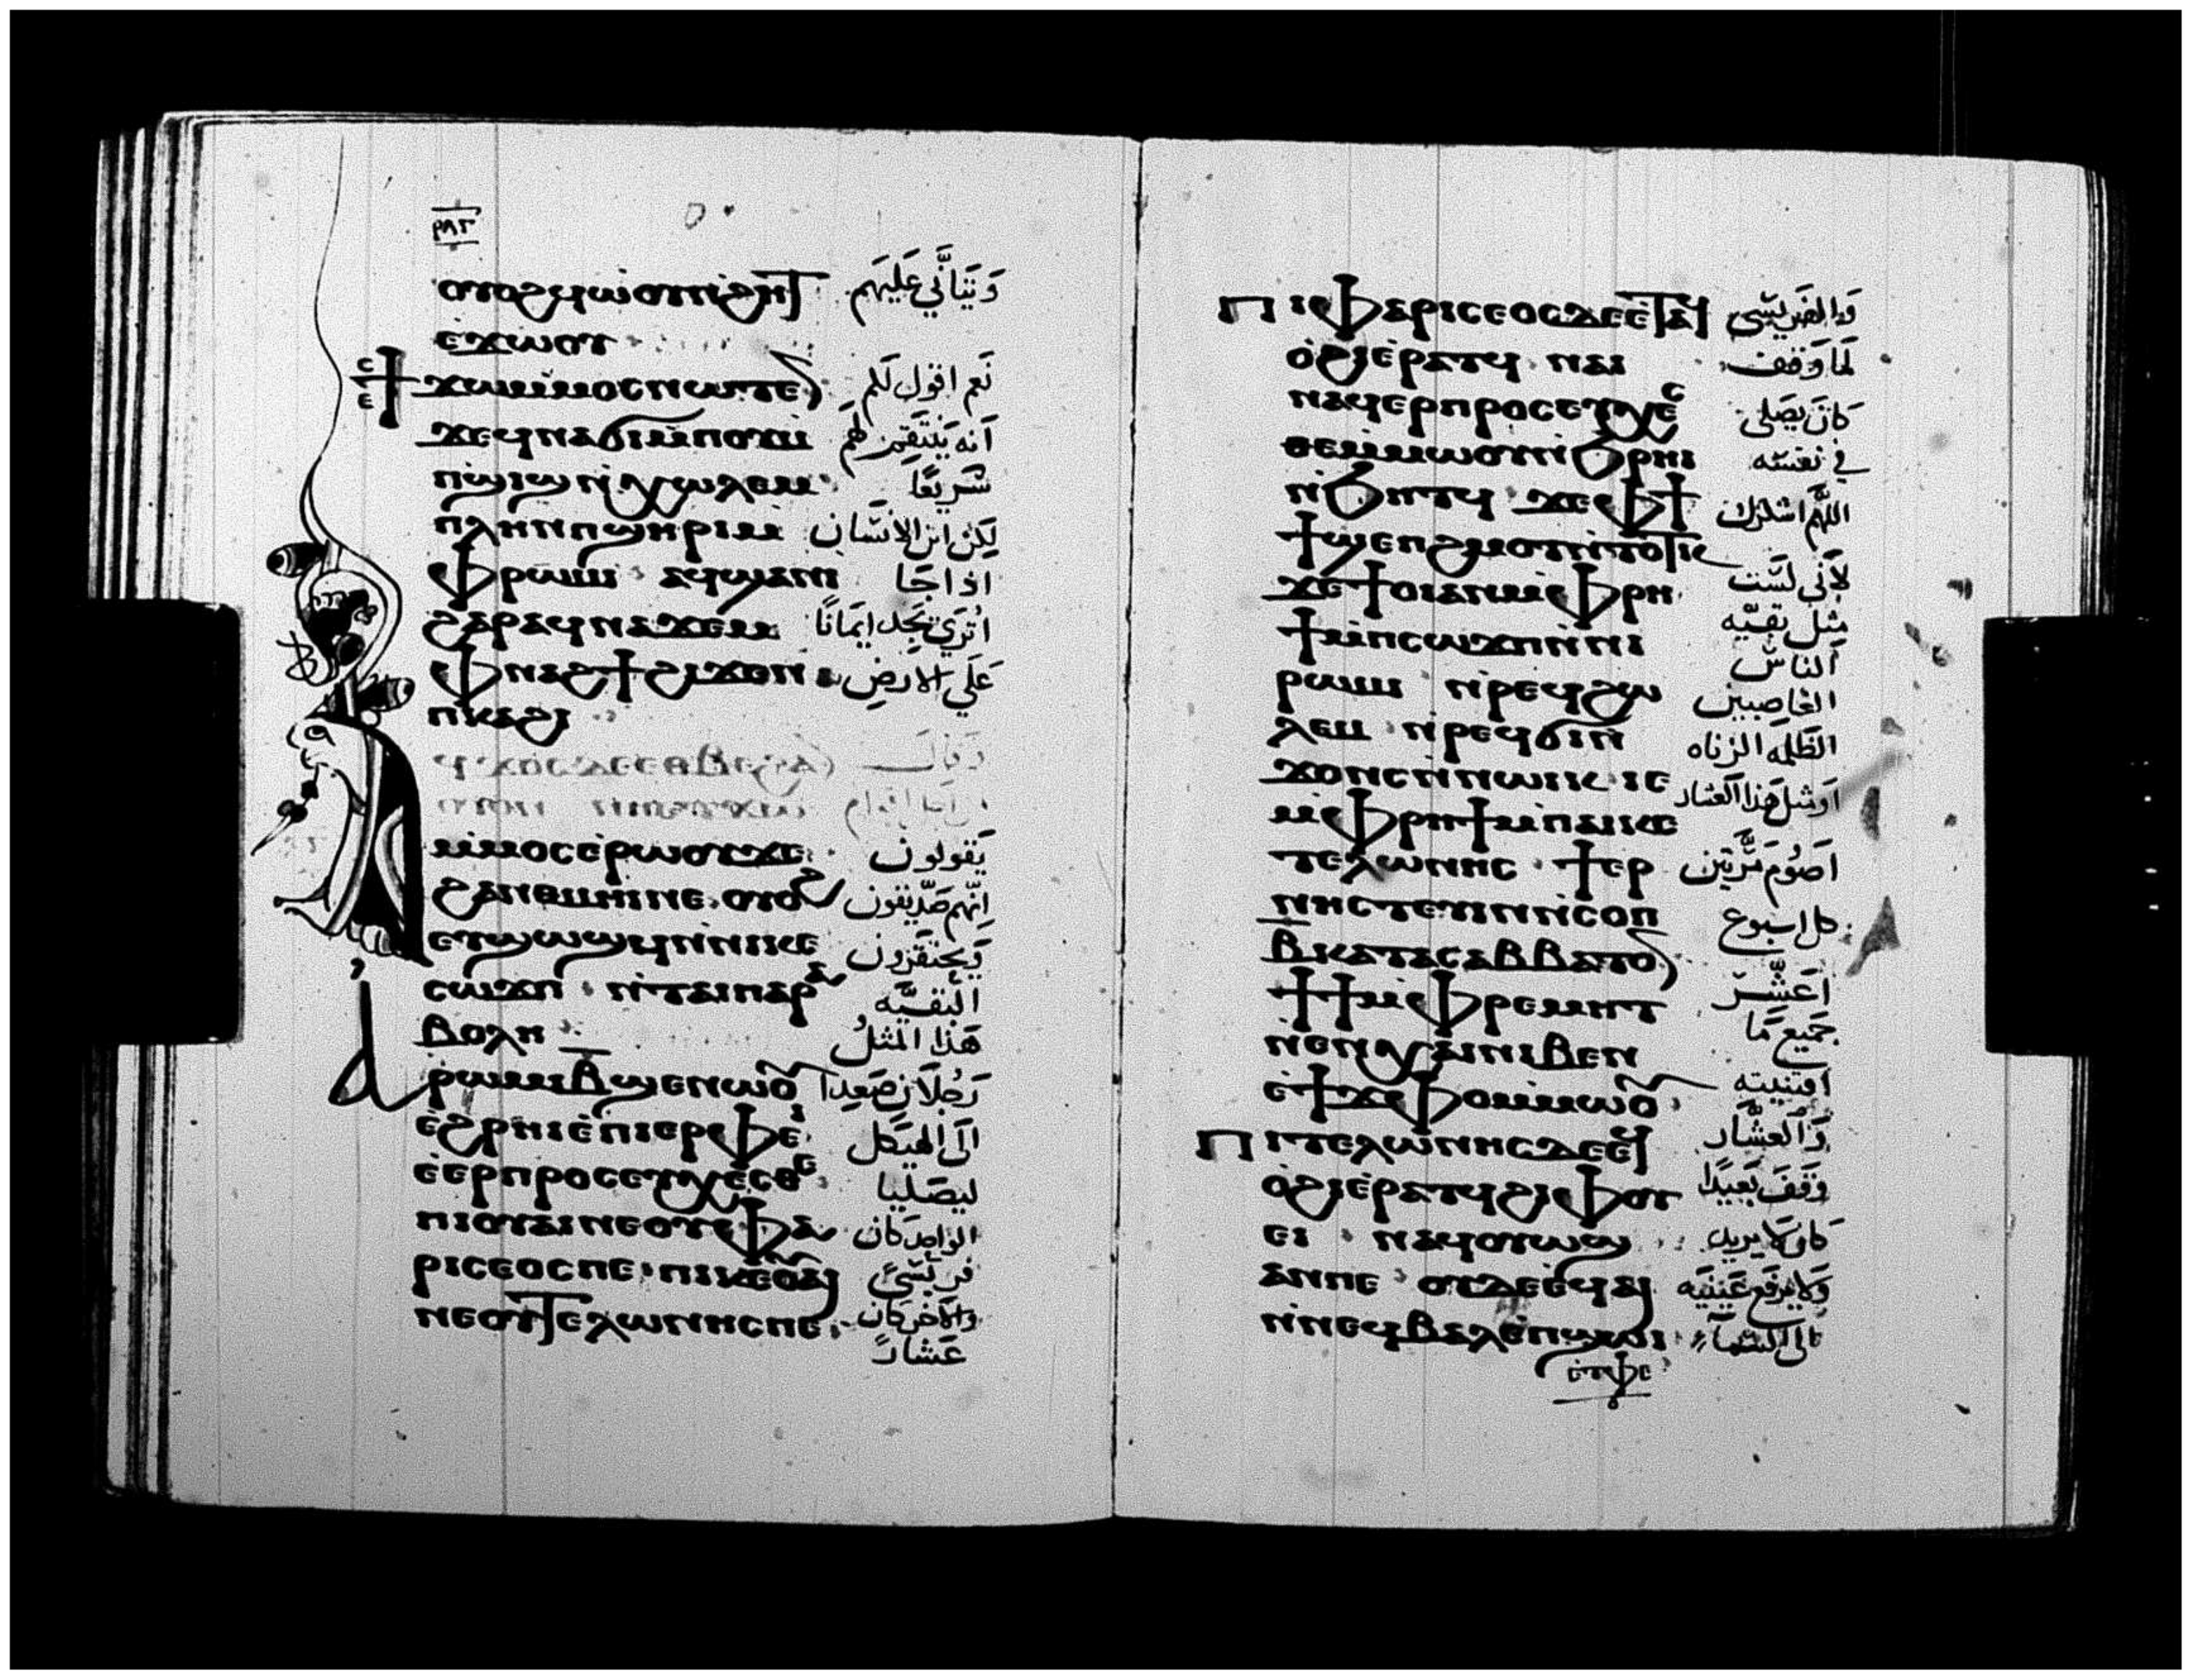 ⲟⲩⲟϩ ϥⲱⲟⲩⲛ̀ϩⲏⲧ وَيَتَأَنَّى عَلَيهَم
ⲉ̀ϫⲱⲟⲩ
ϯϫⲱⲙⲙⲟⲥ ⲛⲱⲧⲉⲛ نَعم اقول لكم
ϫⲉ ϥⲛⲁϭⲓ ⲙ̀ⲡⲟⲩϣⲓ انه ينتقم لهم
ⲡϣⲓϣ ⲛ̀ⲭⲱⲗⲉⲙ شريعًا
ⲡⲗⲏⲛ ⲡϣⲏⲣⲓ ⲙ لكن ابن الانسَان
ⲫⲣⲱⲙⲓ ⲁϥϣⲁⲛⲓ اذا جَا
ϩⲁⲣⲁ ϥⲛⲁϫⲉⲙ اتُرَي يَجَد ايمَانًا
ⲫⲛⲁϩϯ ϩⲓϫⲉⲛ عَلَي الارضِ
ⲡⲓⲕⲁϩⲓ
ⲙ̀ⲙⲟⲥ ⲉ̀ⲣⲱⲟⲩ ϫⲉ يَقولون
ϩⲁⲛⲑⲙⲏⲓ ⲛⲉ ⲟⲩⲟϩ انهم صَدّيقون
ⲉⲧϣⲱϣϥ ⲛ̀ⲛⲓⲕⲉ وَيحتقرون
ⲥⲱϫⲡ ⲛ̀ⲧⲁⲓⲡⲁⲣⲁ البقيَّه
ⲃⲟⲗⲏ هَذا المَثلُ
ⲣⲱⲙⲓ ⲃ̅ ϣⲉⲛⲱⲟⲩ رَجُلَان صَعِدا
ⲉ̀ϩⲣⲏⲓ ⲉ̀ⲡⲓⲉⲣⲫⲉⲓ الَى الهيَكل
ⲉ̀ⲉⲣⲡⲣⲟⲥⲉⲩⲭⲉⲥⲑⲉ ليصَليَا
ⲡⲓⲟⲩⲁⲓ ⲛⲉ ⲟⲩⲫⲁ الواحد كان
ⲣⲓⲥⲉⲟⲥ ⲡⲉ ⲡⲓⲕⲉⲟⲩⲁⲓ فريسًى
ⲛⲉ ⲟⲩⲧⲉⲗⲱⲛⲏⲥ ⲡⲉ والآخر كان
عَشارً
ⲡⲓⲫⲁⲣⲓⲥⲉⲟⲥ ⲇⲉ ⲉ̀ⲧⲁϥ وَالفَريسَى
ⲟ̀ϩⲓ ⲉ̀ⲣⲁⲧϥ ⲛⲁⲓ لَما وَقف
ⲛⲁϥⲉⲣⲡⲣⲟⲥⲉⲩⲭⲉⲥ كَانَ يصَلى
ⲑⲉ ⲙ̀ⲙⲱⲟⲩ ⲛ̀ϧⲣⲏⲓ في نفسَه
ⲛ̀ϧⲏⲧϥ ϫⲉ ⲫϯ اللهَم اشكرك
ϯϣⲉⲡϩⲙⲟⲧ ⲛ̀ⲧⲟⲧⲕ
ϫⲉ ϯⲟⲓ ⲁⲛ ⲙ̀ⲫⲣⲏ لأني لسَت
ϯ ⲙ̀ⲡⲥⲱϫⲡ ⲛ̀ⲛⲓ مثل بقيّه
ⲣⲱⲙⲓ ⲛ̀ⲣⲉϥϩⲱ الناسَ
ⲗⲉⲙ ⲛ̀ⲣⲉϥϭⲓⲛ̀ الغاصبين
ϫⲟⲛⲥ ⲛ̀ⲛⲱⲓⲕ ⲓⲉ الظلمه الزناه
ⲙ̀ⲫⲣⲏϯ ⲙ̀ⲡⲁⲓⲕⲉ اوَمثل هَذا العَشار
ⲧⲉⲗⲱⲛⲏⲥ ϯⲉⲣ اصَوُم مَرَّتَين
ⲛⲏⲥⲧⲉⲩⲓⲛ ⲛ̀ⲥⲟⲡ كل اسبوع
ⲃ̅ ⲕⲁⲧⲁ ⲥⲁⲃⲃⲁⲧⲟⲛ
ϯϯ ⲙ̀ⲫⲣⲉⲙⲏⲧ اعَشّر
ⲛ̀ⲉⲛⲭⲁⲓ ⲛⲓⲃⲉⲛ جَميع مَا
ⲉ̀ϯϫⲫⲟ ⲙ̀ⲙⲱⲟⲩ اقتنيته
ⲡⲓⲧⲉⲗⲱⲛⲏⲥ ⲇⲉ ⲉ̀ϥ وَالعشَّار
ⲟ̀ϩⲓ ⲉ̀ⲣⲁⲧϥ ϩⲓ ⲫⲟⲩ وَقفَ بَعيدًا
ⲉⲓ ⲛⲁϥⲟⲩⲱϣ كان لا يريد
ⲁⲛ ⲡⲉ ⲟⲩⲇⲉ ⲉ̀ϥⲁⲓ وَلا يرَفع عَينيَه
ⲛ̀ⲛⲉϥⲃⲁⲗ ⲉ̀ⲡϣⲱⲓ الى السَّمَآء
ⲉ̀ⲧⲫⲉ